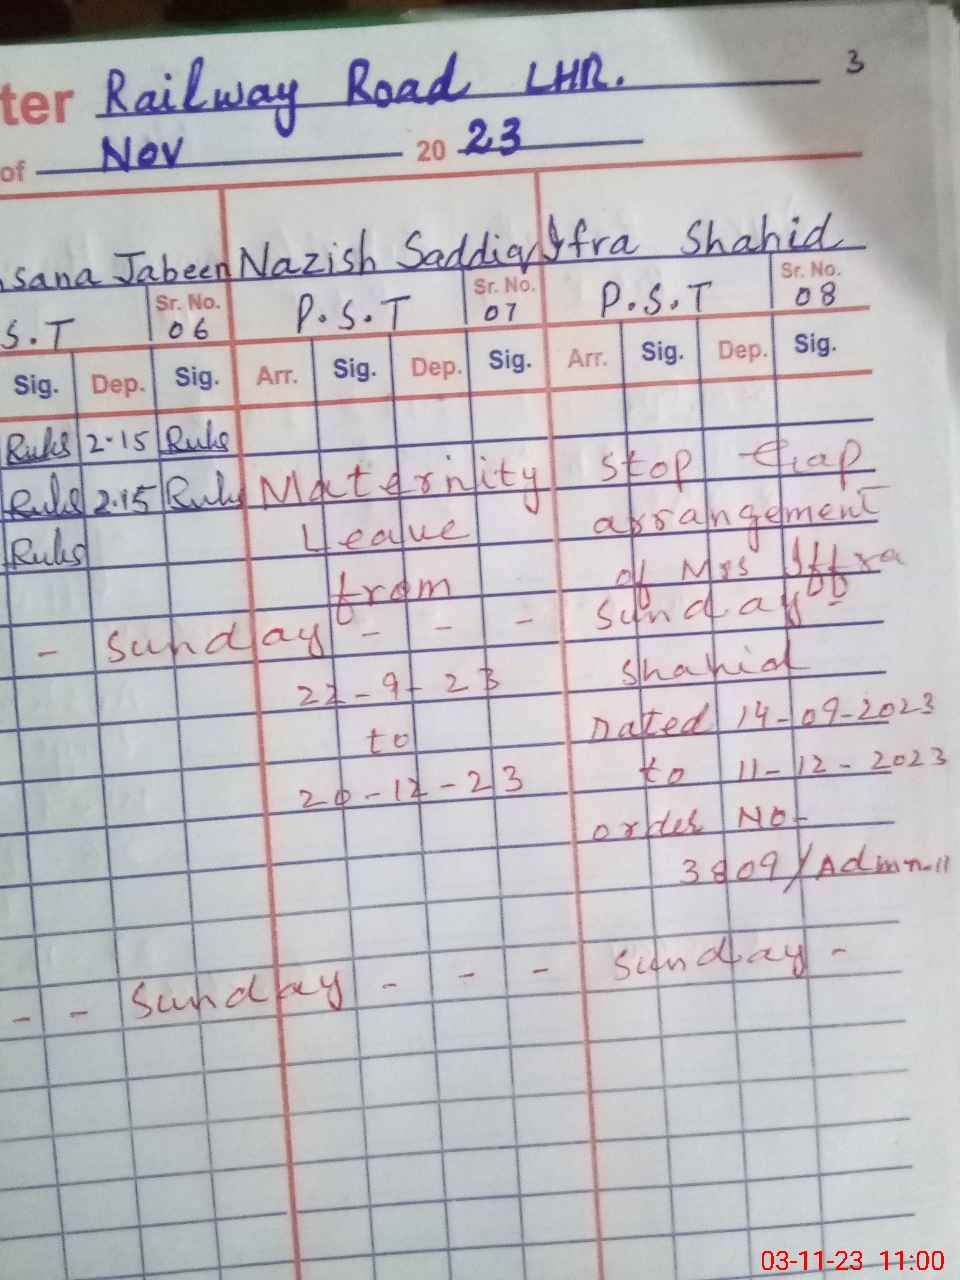 ter Railway Road LHR. 3
of Nov 20 23
sana Jabeen Nazish Saddiq Iffra Shahid
S.T Sr. No. 06 P.S.T Sr. No. 07 P.S.T Sr. No. 08
Sig. Dep. Sig. Arr. Sig. Dep. Sig. Arr. Sig. Dep. Sig.
Ruks 2.15 Ruks
Ruks 2.15 Ruks Maternity stop Gap
Ruks Leave arrangement
from of Mrs Iffra
- Sunday - - - Sunday -
22-9-23 Shahid
to Dated 14-09-2023
20-12-23 to 11-12-2023
order No-
3809/Admn-11
- - Sunday - - - Sunday -
03-11-23 11:00